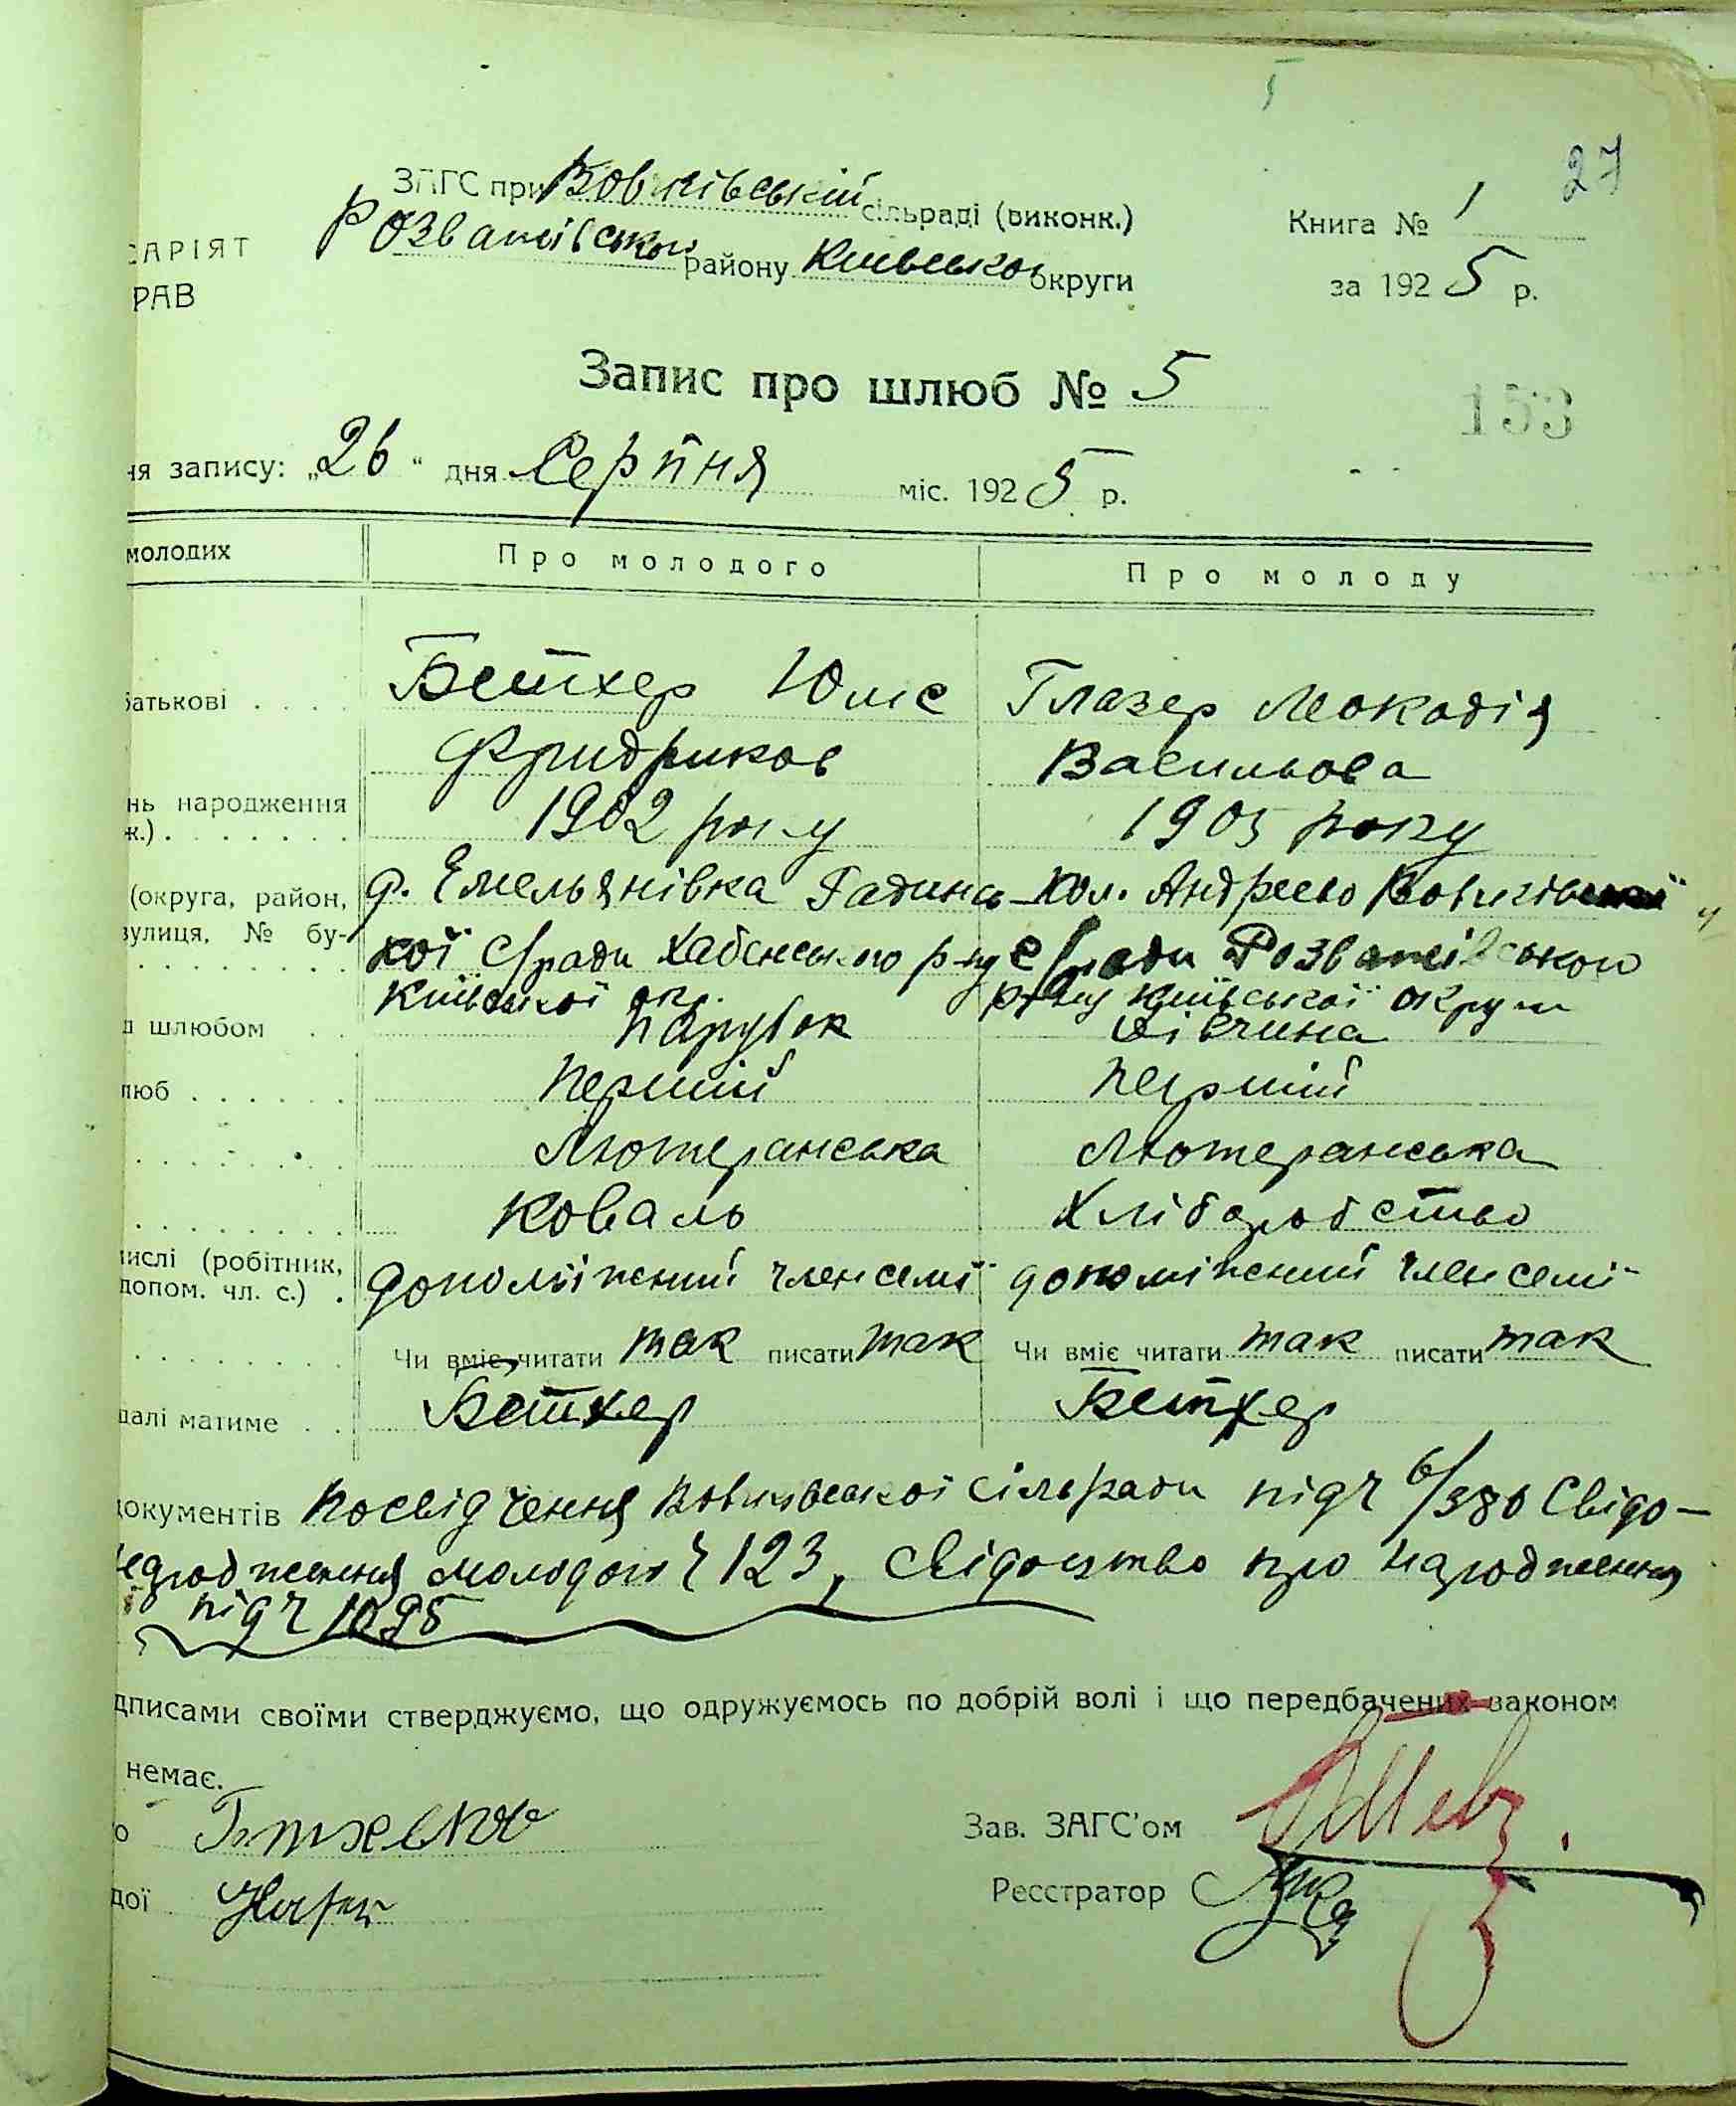 27
ЗАГС при Вовчківській сільраді (виконк.)
Книга № 1
САРІЯТ
Розважівського району Київської округи
за 1925 р.
РАВ
Запис про шлюб № 5
153
ня запису: „26“ дня Серпня міс. 1925 р.
молодих
Про молодого
Про молоду
батькові . . . .
Бетхер Юлі
Глазер Леокадія
Фридриков
Васильова
нь народження
ж.) . . . . . . .
1902 року
1905 року
(округа, район,
д. Емельянівка Гадинсь-
кол. Андреево Вовчківської
вулиця, № бу-
кої с/ради Хабенського р-ну
с/ради Розважівського
Київської ок.
р-ну Київської округи
д шлюбом . .
Парубок
Дівчина
люб . . . . . .
Перший
Перший
Лютеранська
Лютеранська
Коваль
Хліборобство
числі (робітник,
допом. чл. с.) .
допоміжний член семї
допоміжний член семї
Чи вміє читати так писати так
Чи вміє читати так писати так
далі матиме . .
Бетхер
Бетхер
документів Посвідчення Вовчківської сільради під ч 6/380 Свідо-
народження молодого ч 123, свідоцтво про народження
під ч 1095
дписами своїми стверджуємо, що одружуємось по добрій волі і що передбачених законом
немає.
о
Зав. ЗАГС'ом
дої
Реєстратор